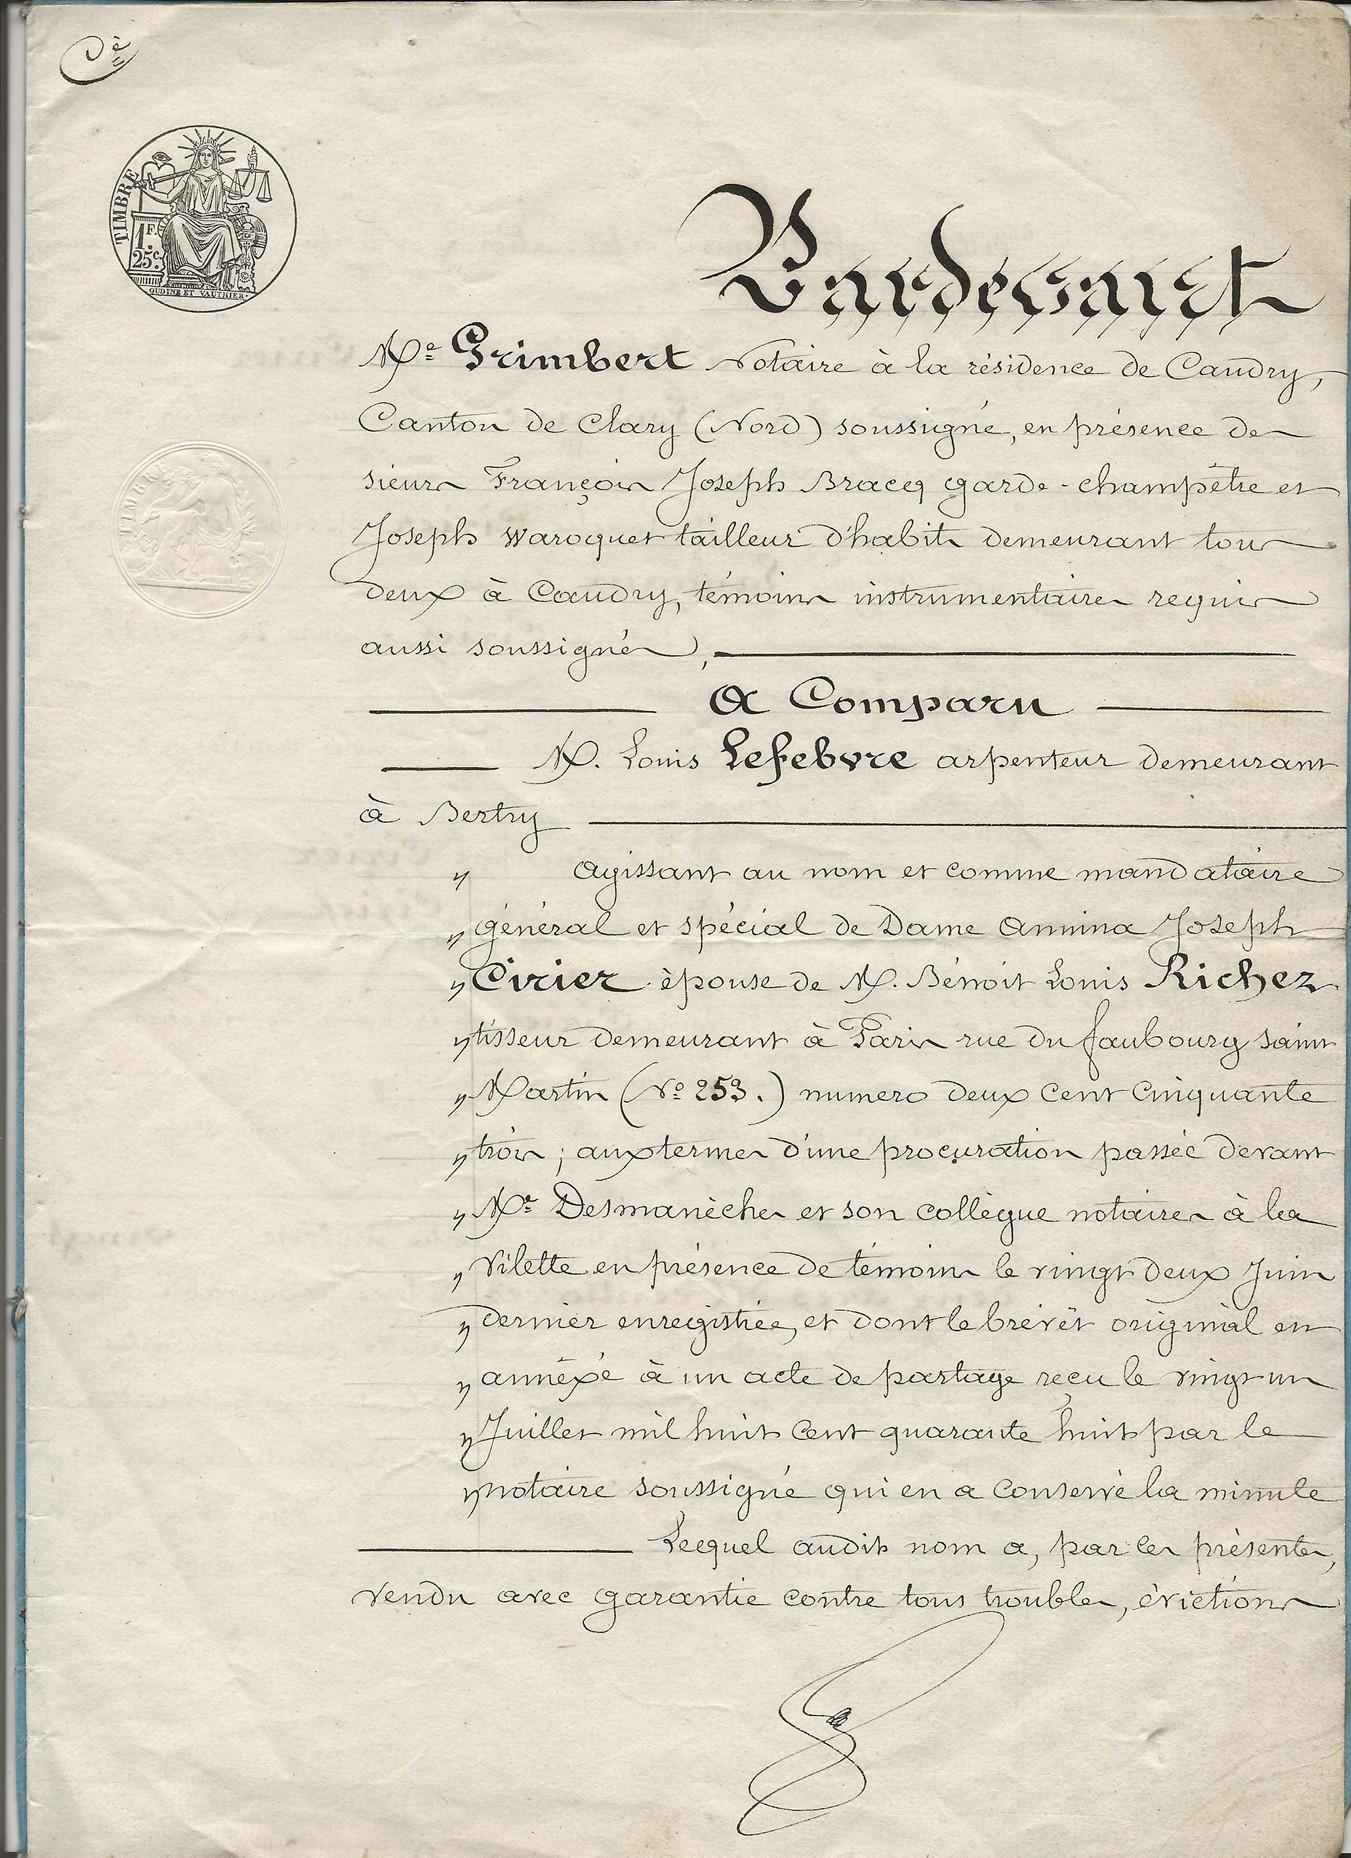 Dé
TIMBRE
1F.
25c.
OUDINÉ ET VAUTHIER
TIMBRE
Pardevant
Me Grimbert Notaire à la résidence de Caudry,
Canton de Clary (Nord) soussigné, en présence de
sieurs François Joseph Bracq garde-champêtre et
Joseph Waroquet tailleur d'habits demeurant tous
deux à Caudry, témoins instrumentaires requis
aussi soussignés,
A Comparu
M. Louis Lefebvre arpenteur demeurant
à Bertry
" agissant au nom et comme mandataire
" général et spécial de Dame Annina Joseph
" Cirier épouse de M. Bénoit Louis Richez
" tisseur demeurant à Paris rue du faubourg saint
" Martin (No 253.) numero deux cent cinquante
" trois ; aux termes d'une procuration passée devant
" Me Desmanèches et son collègue notaires à la
" Vilette en présence de témoins le vingt deux Juin
" dernier enregistrée, et dont le brévêt original est
" annéxé à un acte de partage reçu le vingt un
" Juillet mil huit cent quarante huit par le
" notaire soussigné qui en a conservé la minute
Lequel audit nom a, par ces présentes,
vendu avec garantie contre tous troubles, évictions